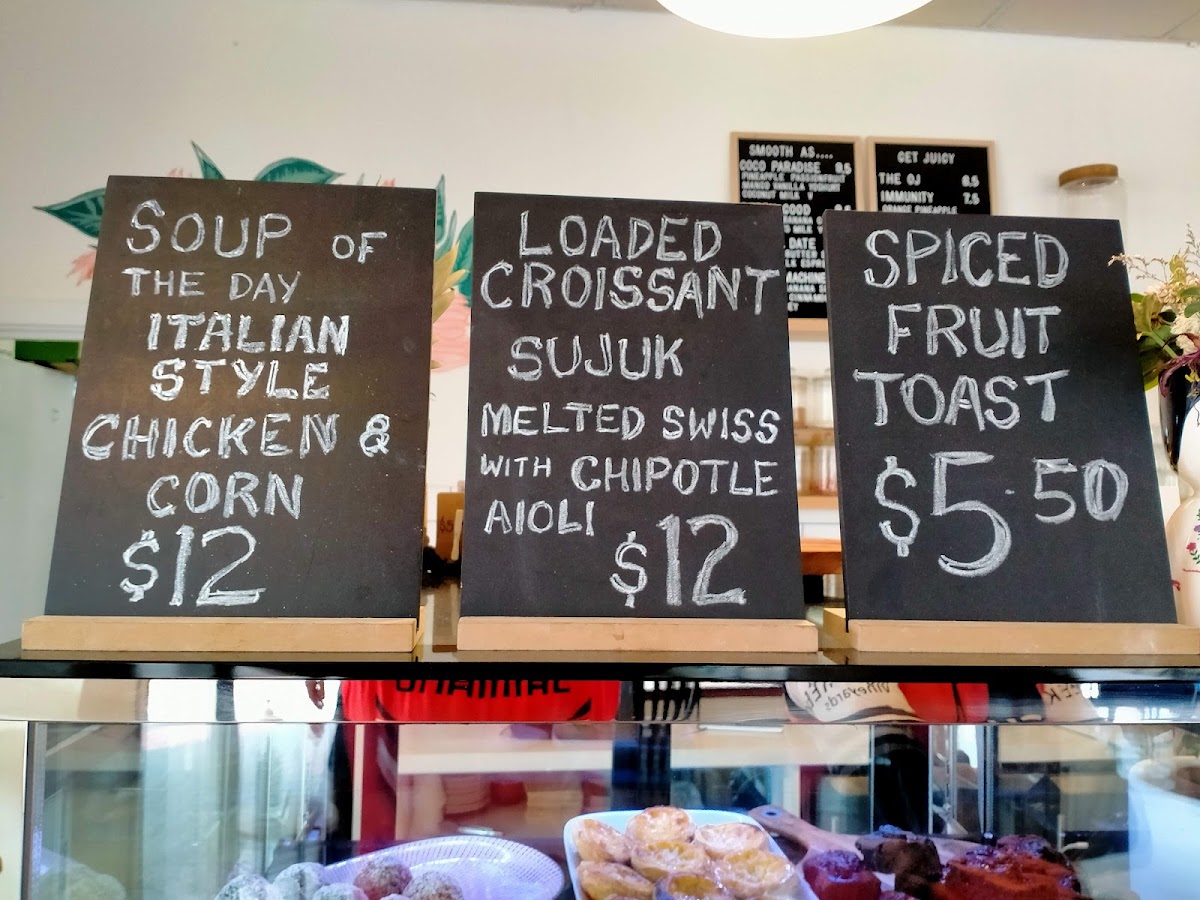 SOUP OF
THE DAY
ITALIAN
STYLE
CHICKEN &
CORN
$12
LOADED
CROISSANT
SUJUK
MELTED SWISS
WITH CHIPOTLE
AIOLI
$12
SPICED
FRUIT
TOAST
$5.50
SMOOTH AS....
COCO PARADISE 9.5
PINEAPPLE PASSIONFRUIT
MANGO VANILLA YOGHURT
COCONUT MILK V
GOOD
DATE
GET JUICY
THE OJ 6.5
IMMUNITY 7.5
ORANGE PINEAPPLE